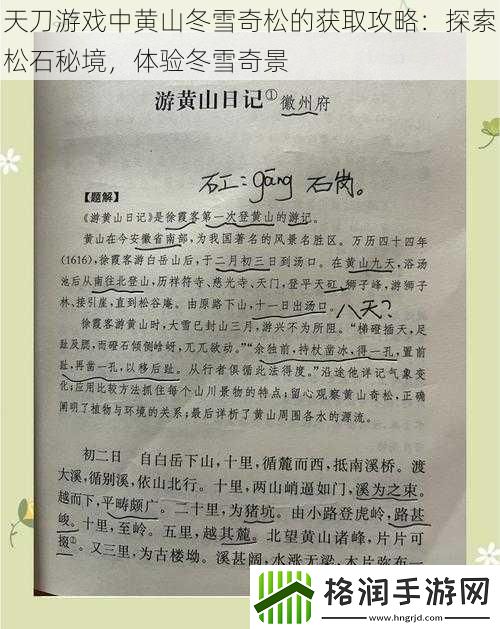 天刀游戏中黄山冬雪奇松的获取攻略：探索
松石秘境，体验冬雪奇景
游黄山日记①徽州府
矼：gāng 石岗。
【题解】
《游黄山日记》是徐霞客第一次登黄山的游记。
黄山在今安徽省南部，为我国著名的风景名胜区。万历四十四年
(1616)，徐霞客游白岳山后，于二月初三日到汤口。在黄山九天，浴汤
池后从南往北登山，历祥符寺、慈光寺、天门，登平天矼、狮子峰，游狮子
林、接引崖，直到松谷庵。由原路下山，十一日出汤口。
八天？
徐霞客游黄山时，大雪已封山三月，游兴不为所阻。“梯磴插天，足
趾及腮，而磴石倾侧崡岈，兀兀欲动。”“余独前，持杖凿冰，得一孔，置前
趾，再凿一孔，以移后趾。从行者俱循此法得度。”沿途他详记气象变
化；应用比较方法抓住每个山川景物的特点；留心观察黄山奇松，正确
阐明了植物与环境的关系；最后详析了黄山周围各水的源流。
初二日　自白岳下山，十里，循麓而西，抵南溪桥。渡
大溪，循别溪，依山北行。十里，两山峭逼如门，溪为之束。
越而下，平畴颇广。二十里，为猪坑。由小路登虎岭，路甚
峻。十里，至岭。五里，越其麓。北望黄山诸峰，片片可
掇②。又三里，为古楼坳。溪甚阔，水涨无梁，木片弥布一
格润手游网
www.hngrjd.com